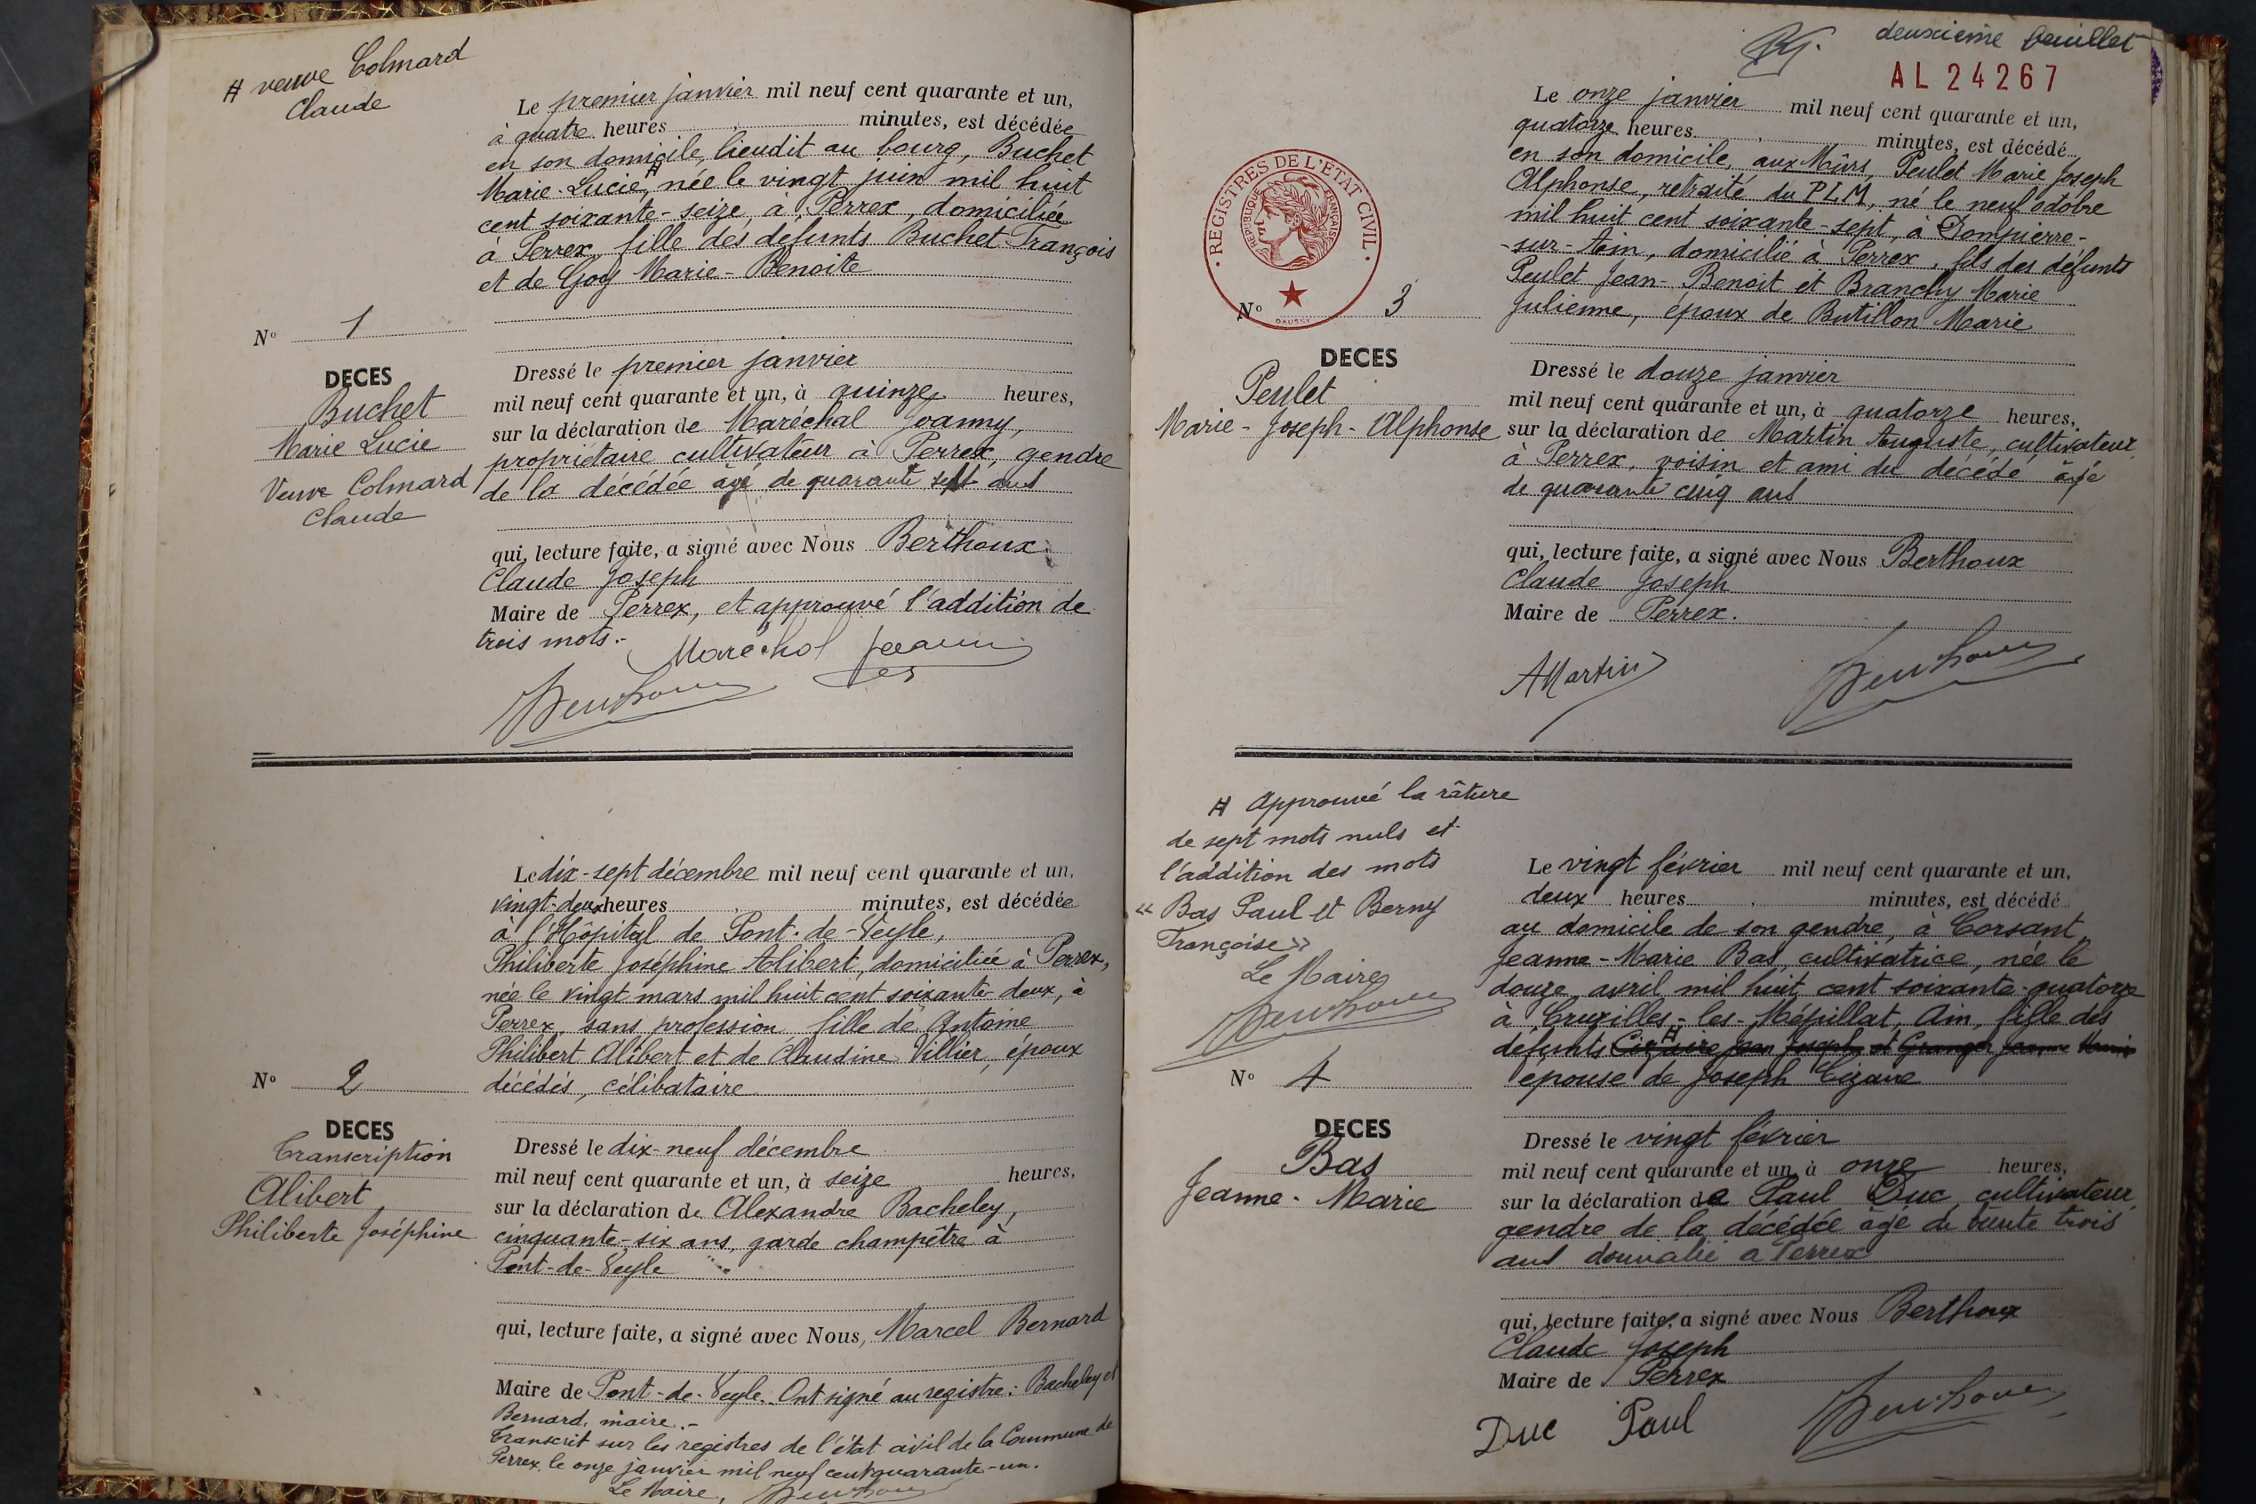 # veuve Colmard
Claude
Le premier janvier mil neuf cent quarante et un,
à quatre heures minutes, est décédée
en son domicile, lieudit au bourg, Buchet
Marie-Lucie, # née le vingt juin mil huit
cent soixante-seize, à Perrex, domiciliée
à Perrex, fille des défunts Buchet François
et de Goy Marie-Benoite
N° 1
DECES
Buchet
Marie Lucie
Veuve Colmard
Claude
Dressé le premier janvier
mil neuf cent quarante et un, à quinze heures,
sur la déclaration de Maréchal Joanny,
propriétaire cultivateur à Perrex, gendre
de la décédée âgé de quarante sept ans
qui, lecture faite, a signé avec Nous Berthoux
Claude Joseph
Maire de Perrex, et approuvé l'addition de
trois mots.-
Maréchal
Le dix-sept décembre mil neuf cent quarante et un,
vingt-deux heures minutes, est décédée
à l'Hôpital de Pont-de-Veyle,
Philiberte Joséphine Alibert, domiciliée à Perrex,
née le vingt mars mil huit cent soixante-deux, à
Perrex, sans profession, fille de Antoine
Philibert Alibert et de Claudine Villier, époux
décédés, célibataire
N° 2
DECES
Transcription
Alibert
Philiberte Joséphine
Dressé le dix-neuf décembre
mil neuf cent quarante et un, à seize heures,
sur la déclaration de Alexandre Bacheley,
cinquante-six ans, garde champêtre à
Pont-de-Veyle
qui, lecture faite, a signé avec Nous, Marcel Bernard
Maire de Pont-de-Veyle. Ont signé au registre: Bacheley et
Bernard, maire.-
Transcrit sur les registres de l'état civil de la Commune de
Perrex, le onze janvier mil neuf cent quarante-un.
Le Maire,
deuxième feuillet
AL 24267
REGISTRES DE L'ÉTAT CIVIL
REPUBLIQUE FRANÇAISE
Le onze janvier mil neuf cent quarante et un,
quatorze heures minutes, est décédé
en son domicile, aux Mûrs, Peulet Marie Joseph
Alphonse, retraité du PLM, né le neuf octobre
mil huit cent soixante-sept, à Dompierre-
-sur-Ain, domicilié à Perrex, fils des défunts
Peulet Jean-Benoit et Branchy Marie
Julienne, époux de Butillon Marie
N° 3
DECES
Peulet
Marie-Joseph-Alphonse
Dressé le douze janvier
mil neuf cent quarante et un, à quatorze heures,
sur la déclaration de Martin Auguste, cultivateur
à Perrex, voisin et ami du décédé âgé
de quarante cinq ans
qui, lecture faite, a signé avec Nous Berthoux
Claude Joseph
Maire de Perrex.
AMartin
# Approuvé la râture
de sept mots nuls et
l'addition des mots
« Bas Paul et Berny
Françoise »
Le Maire
Le vingt février mil neuf cent quarante et un,
deux heures minutes, est décédé
au domicile de son gendre, à Corsant,
Jeanne-Marie Bas, cultivatrice, née le
douze avril mil huit cent soixante-quatorze
à Cruzilles-les-Mépillat, Ain, fille des
défunts # Jean Joseph et Granger Jeanne
épouse de Joseph Cizaire
N° 4
DECES
Bas
Jeanne-Marie
Dressé le vingt février
mil neuf cent quarante et un, à onze heures,
sur la déclaration de Paul Duc, cultivateur,
gendre de la décédée âgé de trente trois
ans domicilié à Perrex
qui, lecture faite, a signé avec Nous Berthoux
Claude Joseph
Maire de Perrex
Duc Paul